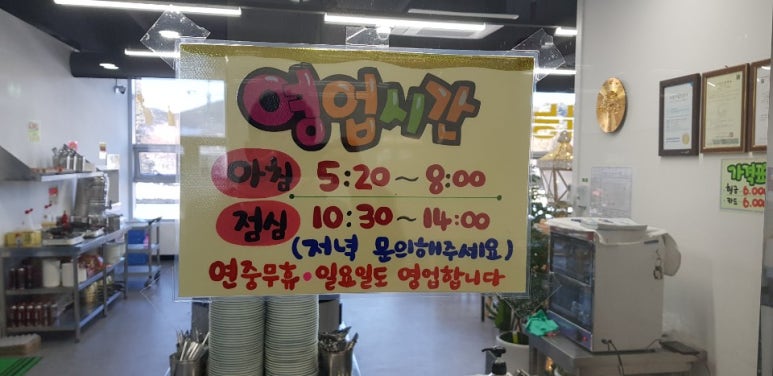 영업시간
아침 5:20~8:00
점심 10:30~14:00
(저녁 문의해주세요)
연중무휴•일요일도 영업합니다
가격표
현금 6.000
카드 6.000